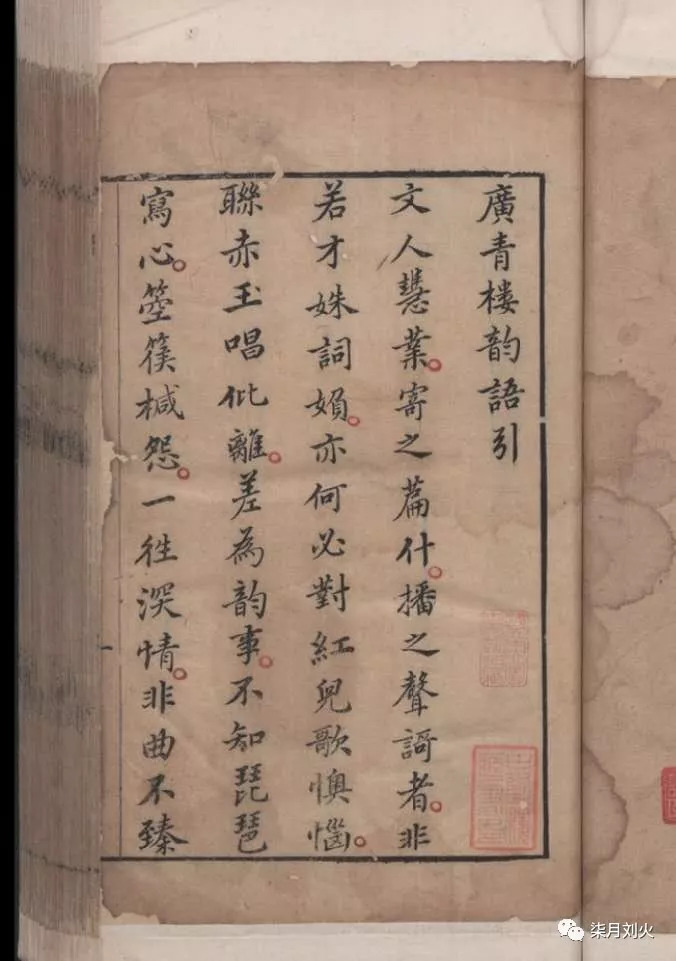 廣青樓韵語引
文人慧業寄之篇什播之聲謌者非
若才姝詞媍亦何必對紅兒歌懊惱
聯赤玉唱仳離差為韵事不知琵琶
寫心箜篌椷怨一徃深情非曲不臻
柒月刘火